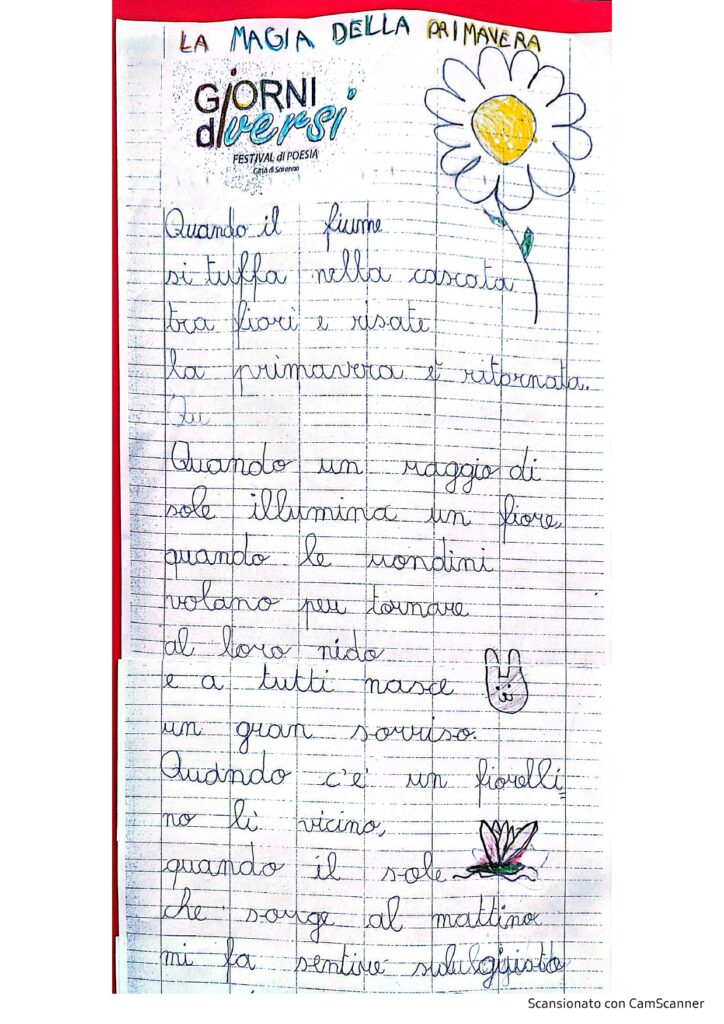 LA MAGIA DELLA PRIMAVERA
GIORNI
diversi
FESTIVAL di POESIA
Città di Saronno
Quando il fiume
si tuffa nella cascata
tra fiori e risate
la primavera è ritornata.
Qu
Quando un raggio di
sole illumina un fiore,
quando le rondini
volano per tornare
al loro nido
e a tutti nasce
un gran sorriso.
Quando c'è un fiorelli
no lì vicino,
quando il sole
che sorge al mattino
mi fa sentire
Scansionato con CamScanner